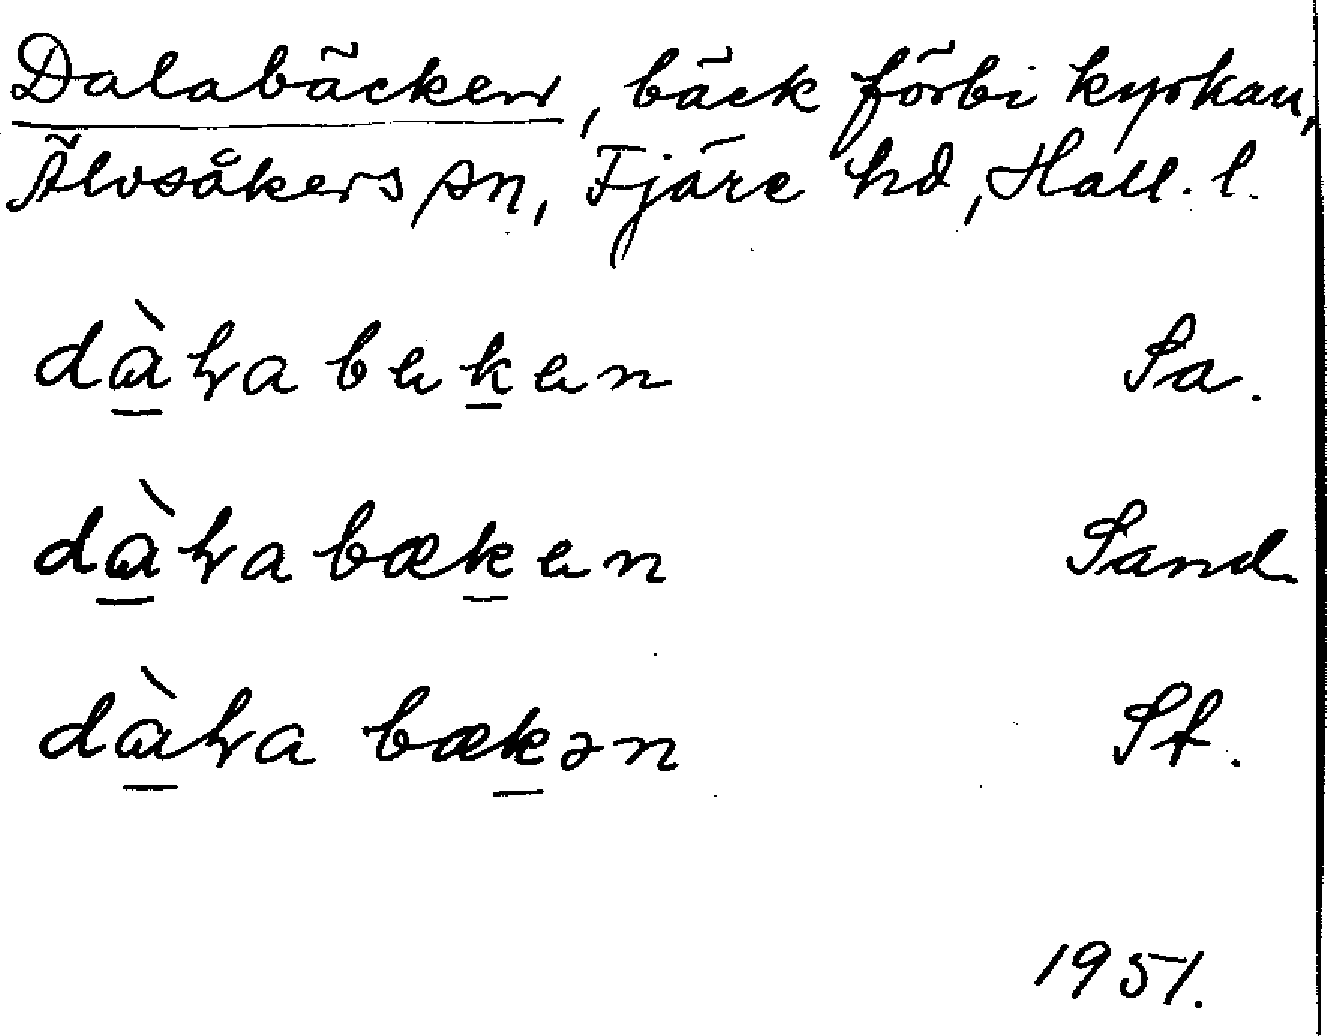 Dalabäcken, bäck förbi kyrkan,
Älvsåkers sn, Fjäre hd, Hall. l.
dàɫabeken Sa.
dàɫabæken Sand
dàɫa bækən St.
1951.